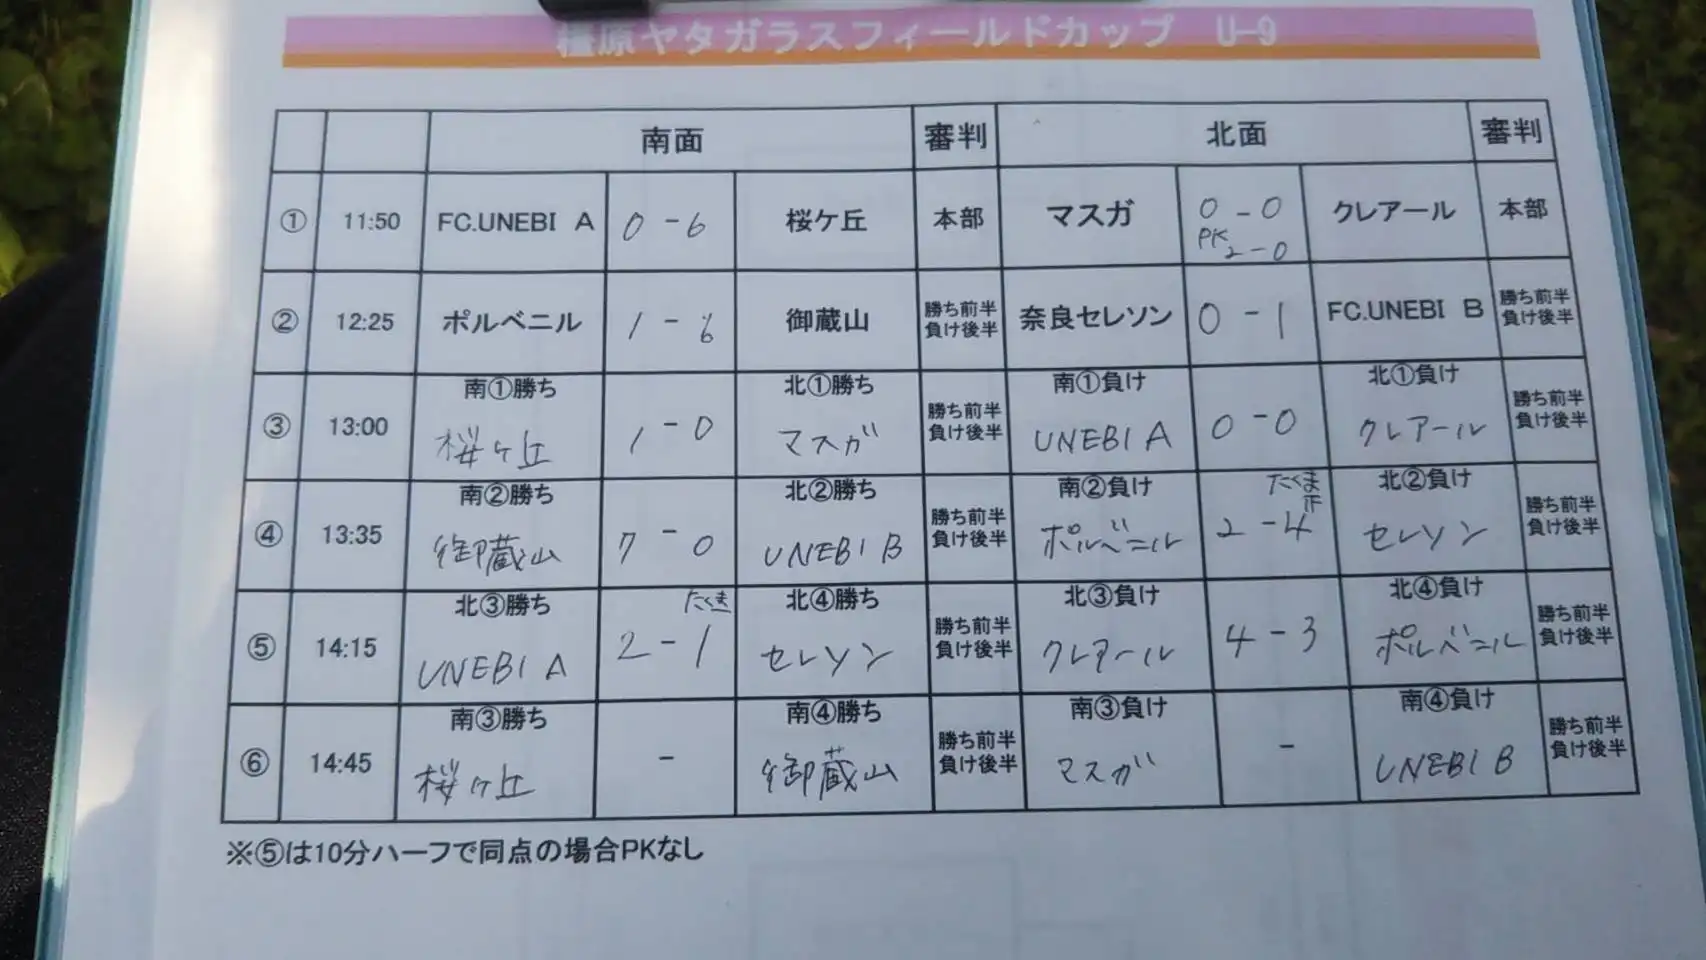 橿原ヤタガラスフィールドカップ U-9
南面 審判 北面 審判
① 11:50 FC.UNEBI A 0 - 6 桜ケ丘 本部 マスガ 0 - 0 クレアール 本部
PK 2 - 0
② 12:25 ポルベニル 1 - 6 御蔵山 勝ち前半 奈良セレソン 0 - 1 FC.UNEBI B 勝ち前半
負け後半 負け後半
南①勝ち 北①勝ち 勝ち前半 南①負け 北①負け 勝ち前半
③ 13:00 桜ケ丘 1 - 0 マスガ 負け後半 UNEBI A 0 - 0 クレアール 負け後半
南②勝ち 北②勝ち 勝ち前半 南②負け たくま 北②負け 勝ち前半
④ 13:35 御蔵山 7 - 0 UNEBI B 負け後半 ポルベニル 2 - 4 セレソン 負け後半
北③勝ち たくま 北④勝ち 勝ち前半 北③負け 北④負け 勝ち前半
⑤ 14:15 UNEBI A 2 - 1 セレソン 負け後半 クレアール 4 - 3 ポルベニル 負け後半
南③勝ち 南④勝ち 勝ち前半 南③負け 南④負け 勝ち前半
⑥ 14:45 桜ケ丘 - 御蔵山 負け後半 マスガ - UNEBI B 負け後半
※⑤は10分ハーフで同点の場合PKなし